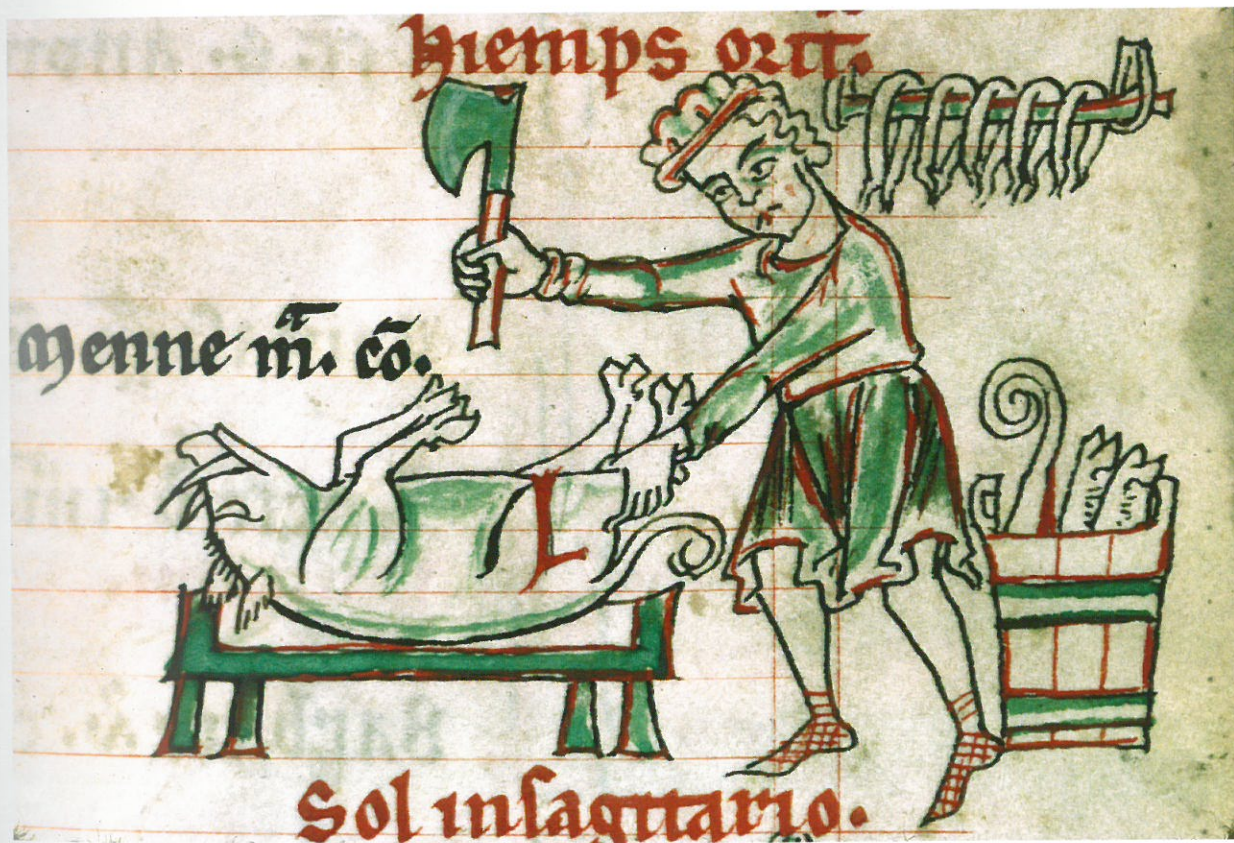 hiemps orit̄.
Menne m̄. cō.
Sol insagittario.